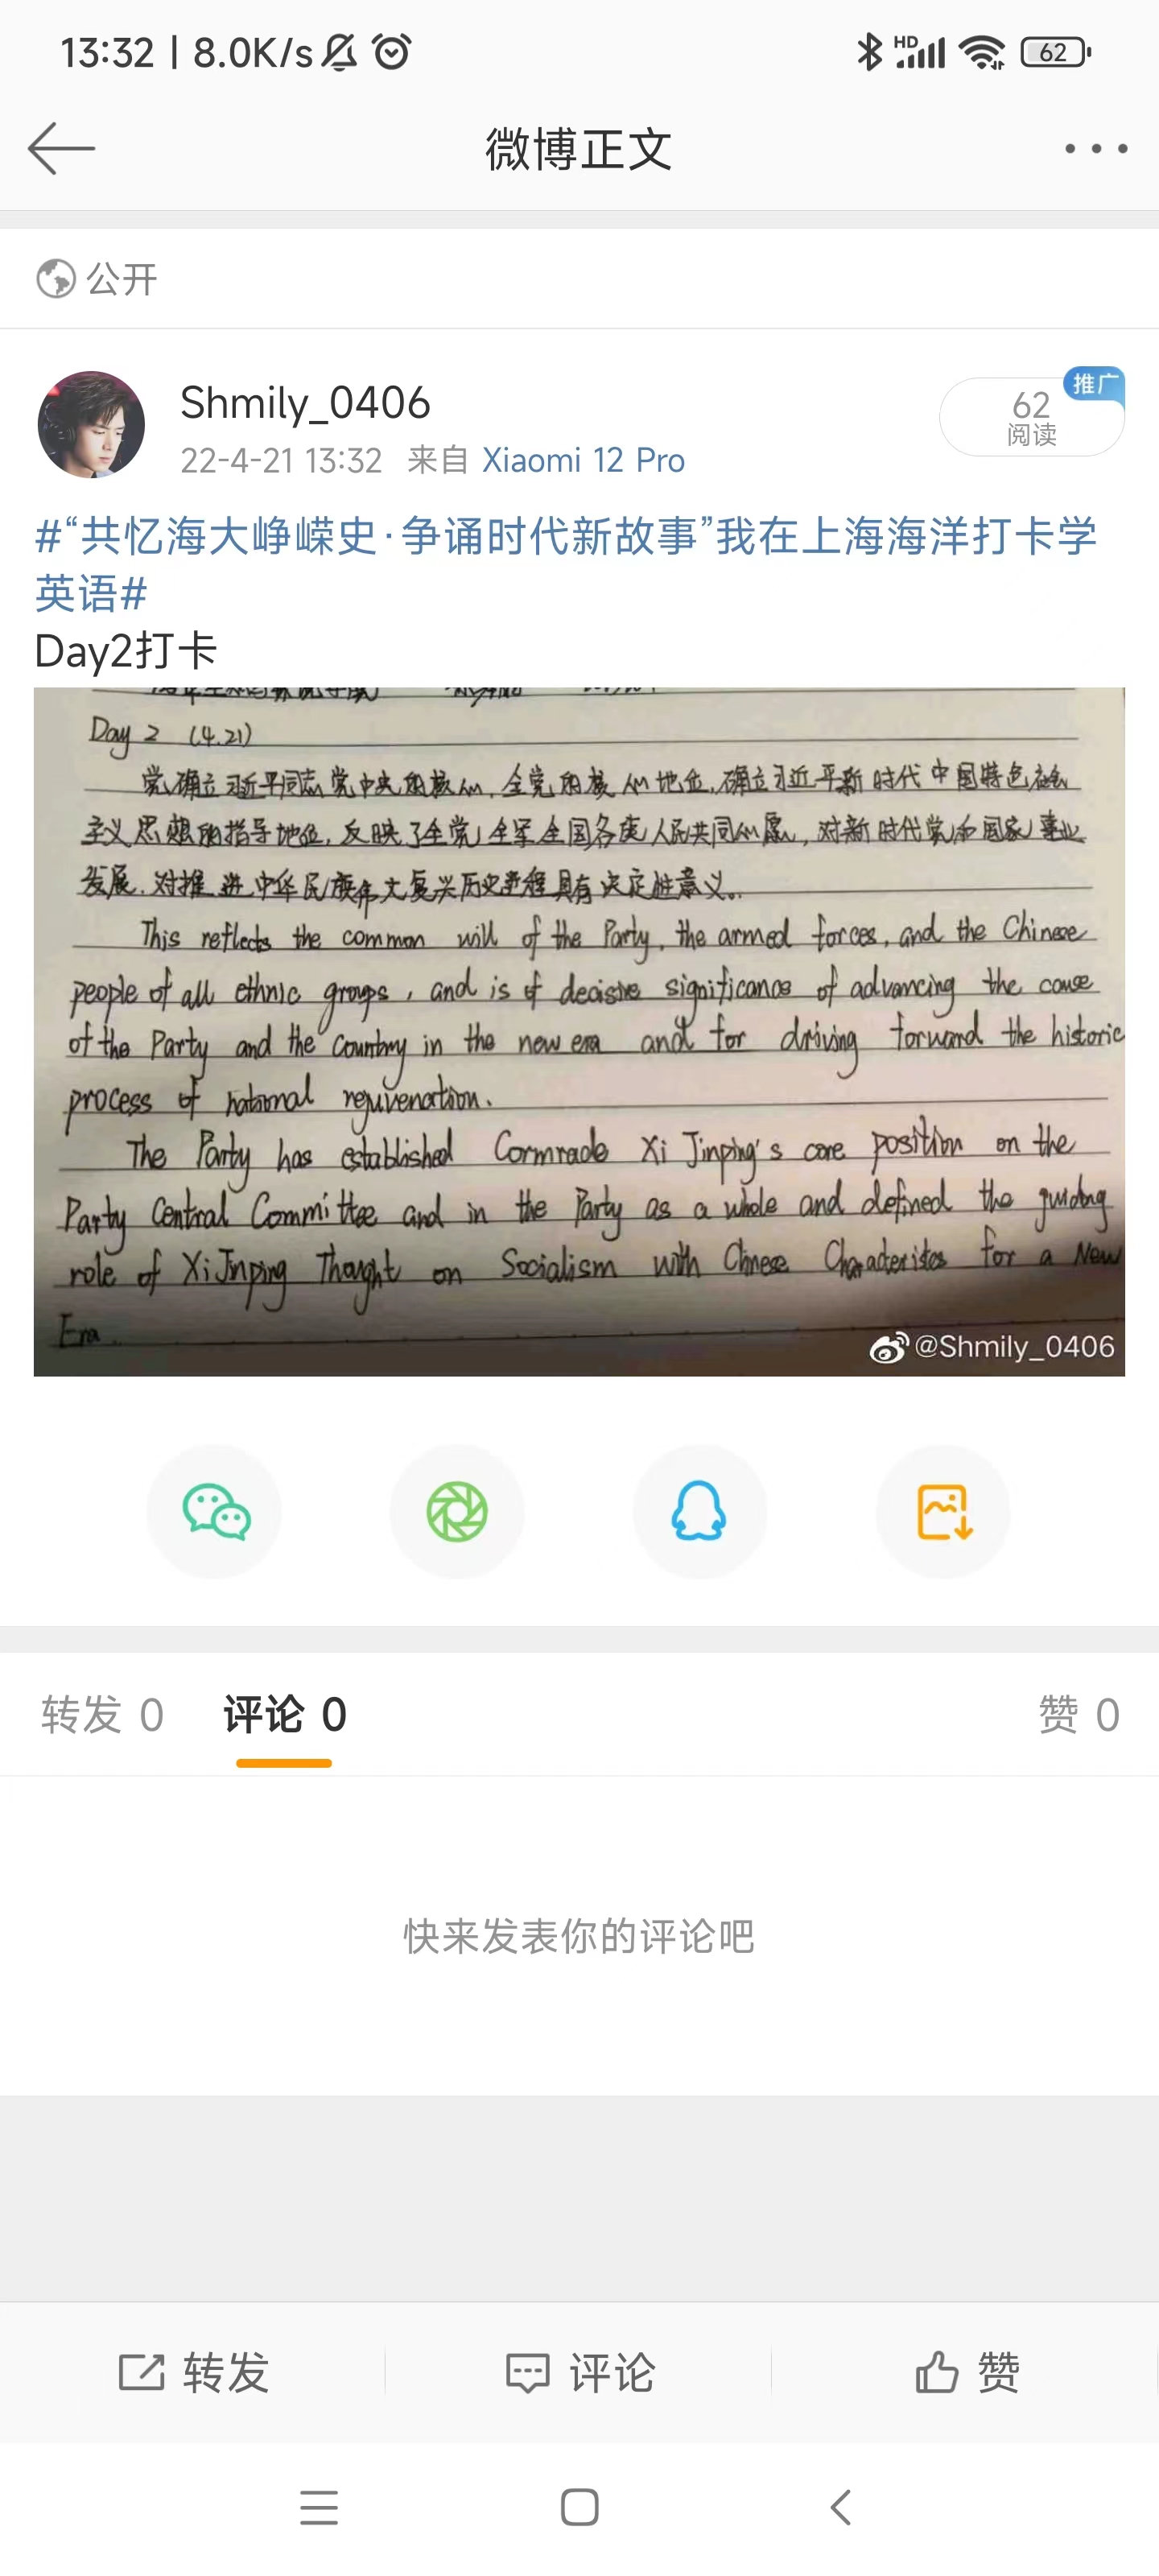 13:32 | 8.0K/s
HD
62
微博正文
公开
Shmily_0406
推广
62
阅读
22-4-21 13:32 来自 Xiaomi 12 Pro
#“共忆海大峥嵘史·争诵时代新故事”我在上海海洋打卡学
英语#
Day2打卡
Day 2 (4.21)
党确立习近平同志党中央的核心,全党的核心地位,确立习近平新时代中国特色社会
主义思想的指导地位,反映了全党全军全国各族人民共同心愿,对新时代党和国家事业
发展.对推进中华民族伟大复兴历史进程具有决定性意义。
This reflects the common will of the Party, the armed forces, and the Chinese
people of all ethnic groups, and is of decisive significance of advancing the cause
of the Party and the Country in the new era and for driving forward the historic
process of national rejuvenation.
The Party has established Cormrade Xi Jinping's core position on the
Party Central Committee and in the Party as a whole and defined the guiding
role of Xi Jinping Thought on Socialism with Chinese Characteristcs for a New
Era
@Shmily_0406
转发 0
评论 0
赞 0
快来发表你的评论吧
转发
评论
赞